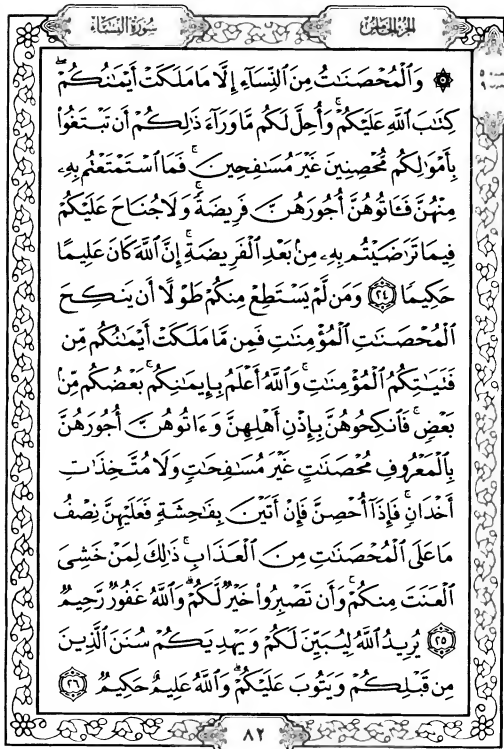 الجزء الخامس
سورة النساء
۞ وَالْمُحْصَنَاتُ مِنَ النِّسَاءِ إِلَّا مَا مَلَكَتْ أَيْمَانُكُمْ ۖ
كِتَابَ اللَّهِ عَلَيْكُمْ ۚ وَأُحِلَّ لَكُم مَّا وَرَاءَ ذَٰلِكُمْ أَن تَبْتَغُوا
بِأَمْوَالِكُم مُّحْصِنِينَ غَيْرَ مُسَافِحِينَ ۚ فَمَا اسْتَمْتَعْتُم بِهِ
مِنْهُنَّ فَـَٔاتُوهُنَّ أُجُورَهُنَّ فَرِيضَةً ۚ وَلَا جُنَاحَ عَلَيْكُمْ
فِيمَا تَرَاضَيْتُم بِهِ مِنۢ بَعْدِ الْفَرِيضَةِ ۚ إِنَّ اللَّهَ كَانَ عَلِيمًا
حَكِيمًا ٢٤ وَمَن لَّمْ يَسْتَطِعْ مِنكُمْ طَوْلًا أَن يَنكِحَ
الْمُحْصَنَاتِ الْمُؤْمِنَاتِ فَمِن مَّا مَلَكَتْ أَيْمَانُكُم مِّن
فَتَيَاتِكُمُ الْمُؤْمِنَاتِ ۚ وَاللَّهُ أَعْلَمُ بِإِيمَانِكُم ۚ بَعْضُكُم مِّنۢ
بَعْضٍ ۚ فَانكِحُوهُنَّ بِإِذْنِ أَهْلِهِنَّ وَءَاتُوهُنَّ أُجُورَهُنَّ
بِالْمَعْرُوفِ مُحْصَنَاتٍ غَيْرَ مُسَافِحَاتٍ وَلَا مُتَّخِذَاتِ
أَخْدَانٍ ۚ فَإِذَا أُحْصِنَّ فَإِنْ أَتَيْنَ بِفَاحِشَةٍ فَعَلَيْهِنَّ نِصْفُ
مَا عَلَى الْمُحْصَنَاتِ مِنَ الْعَذَابِ ۚ ذَٰلِكَ لِمَنْ خَشِيَ
الْعَنَتَ مِنكُمْ ۚ وَأَن تَصْبِرُوا خَيْرٌ لَّكُمْ ۗ وَاللَّهُ غَفُورٌ رَّحِيمٌ
٢٥ يُرِيدُ اللَّهُ لِيُبَيِّنَ لَكُمْ وَيَهْدِيَكُمْ سُنَنَ الَّذِينَ
مِن قَبْلِكُمْ وَيَتُوبَ عَلَيْكُمْ ۗ وَاللَّهُ عَلِيمٌ حَكِيمٌ ٢٦
٨٢